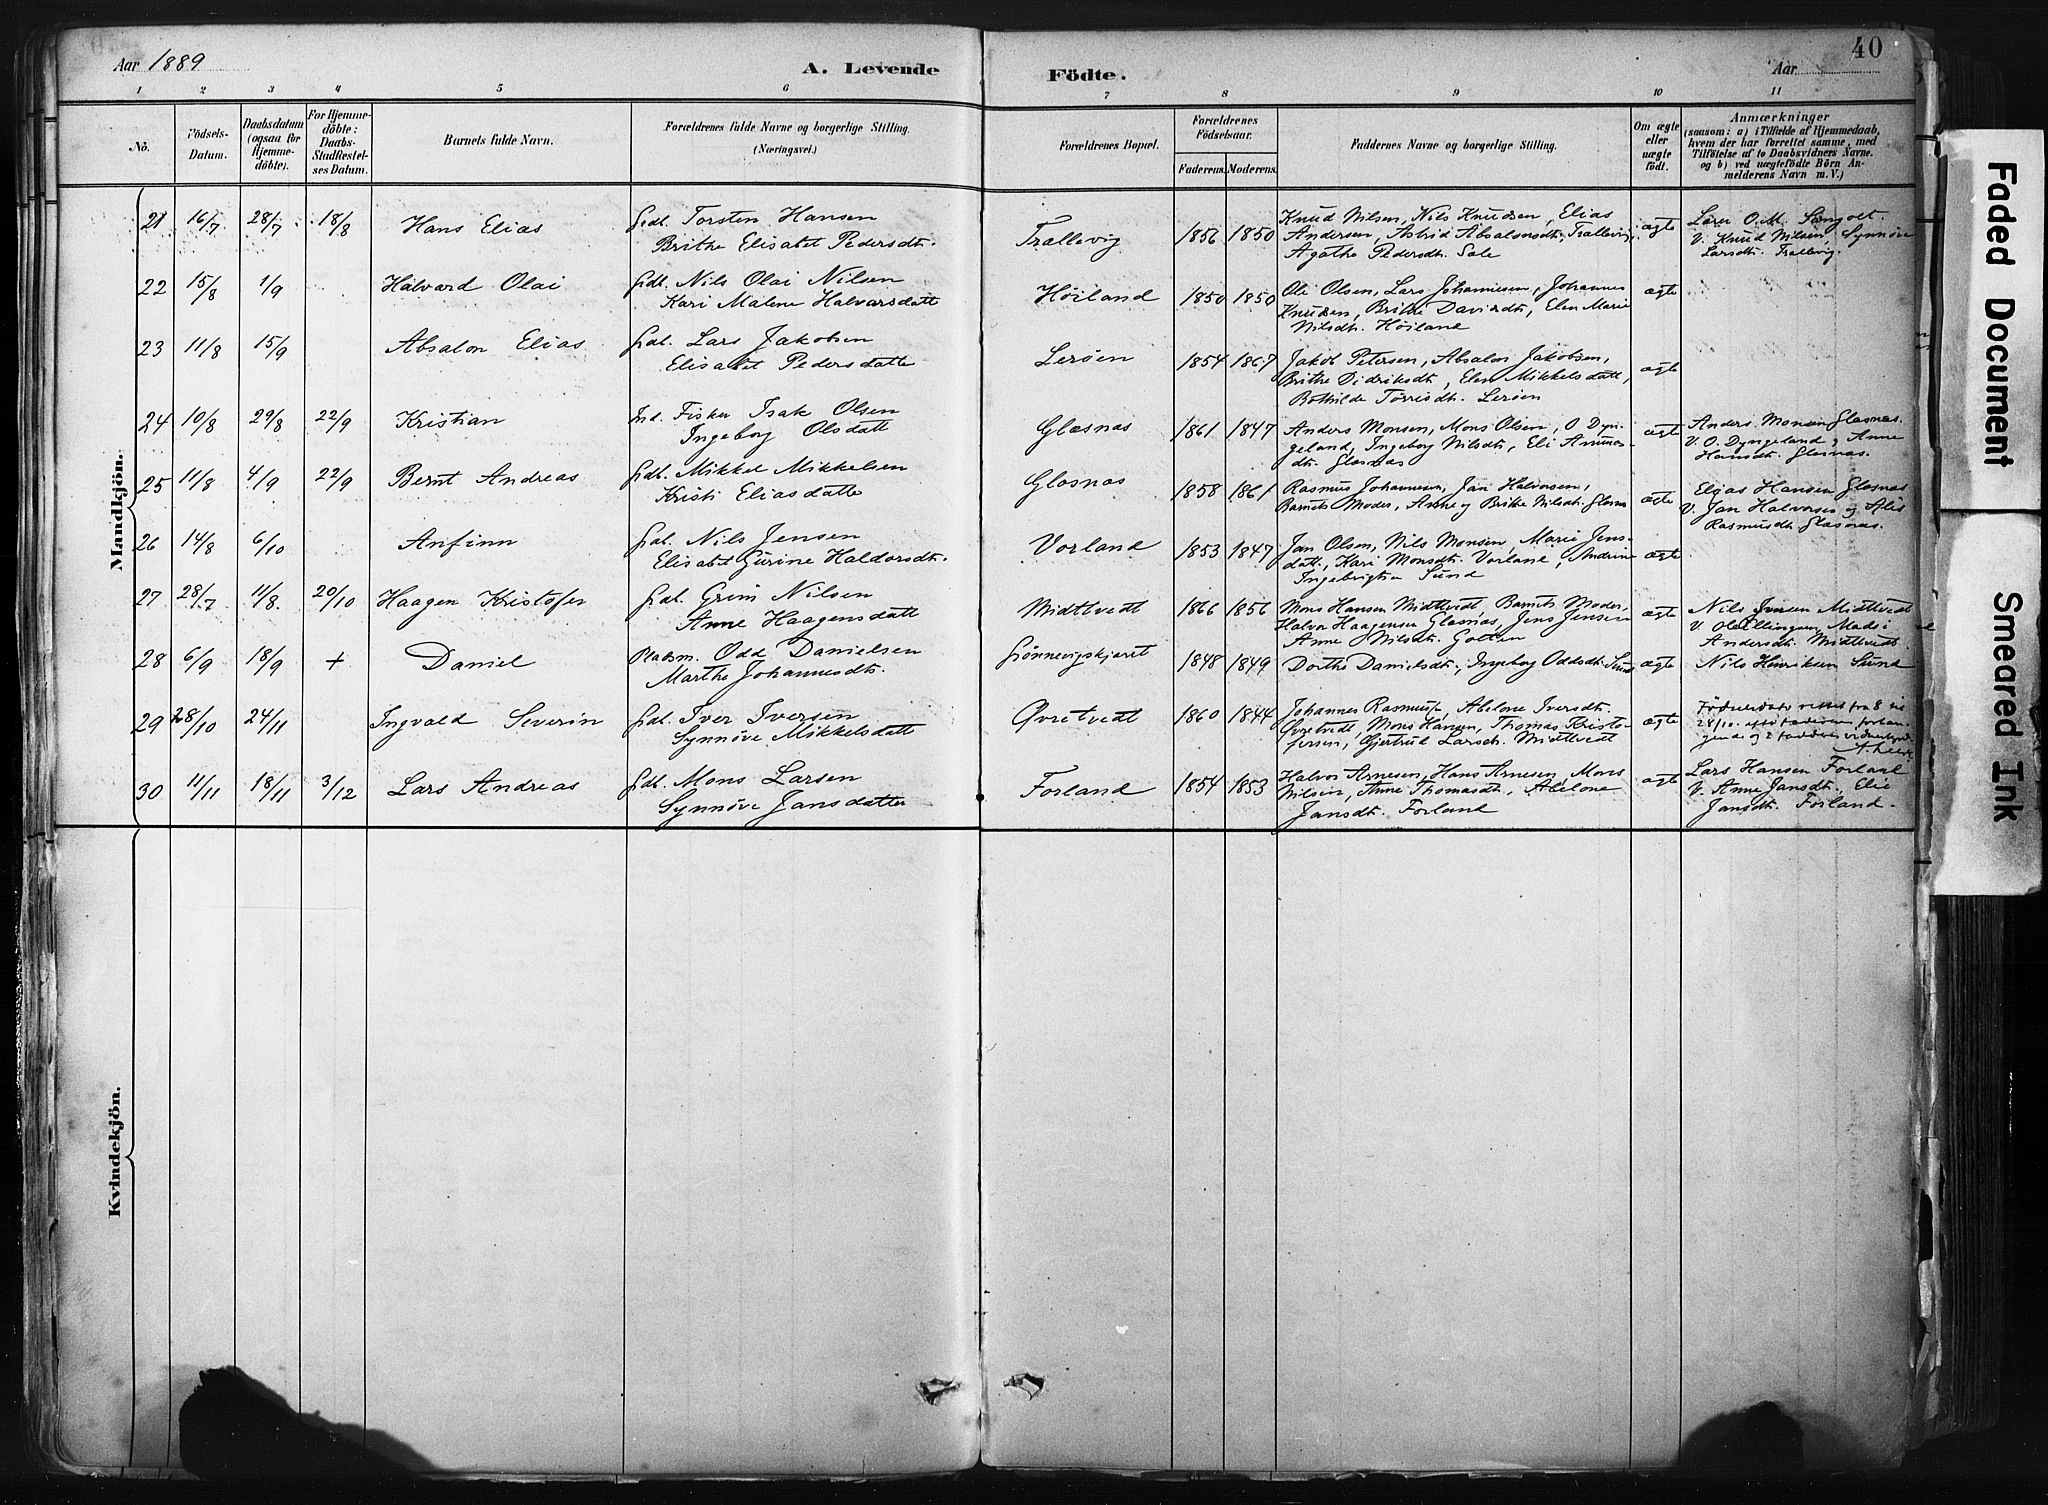 Aar 1889
A. Levende Födte.
Aar
40
1 2 3 4 5 6 7 8 9 10 11
No.
Födsels-Datum.
Daabsdatum (ogsaa for Hjemmedöbte).
For Hjemmedöbte: Daabs-Stadfæstelses Datum.
Barnets fulde Navn.
Forældrenes fulde Navne og borgerlige Stilling. (Næringsvei.)
Forældrenes Bopæl.
Forældrenes Födselsaar.
Faderens. Moderens.
Faddernes Navne og borgerlige Stilling.
Om ægte eller uægte födt.
Anmærkninger
(saasom: a) i Tilfælde af Hjemmedaab, hvem der har forrettet samme, med Tilföielse af to Daabsvidners Navne. og b) ved uægtefödte Börn Anmelderens Navn m. V.)
Mandkjön.
21 16/7 28/7 18/8 Hans Elias Gdb. Torsten Hansen
Brithe Elisabet Pedersdt. Trallevig 1856 1850 Knud Nilsen, Nils Knudsen, Elias
Andersen, Astrid Absalonsdt. Trallevig,
Agathe Pedersdt. Sole ægte Lærer O.M. Sangolt
V. Knud Nilsen, Synnöve
Larsdt. Trallevig.
22 15/8 1/9 Halvard Olai Gdb. Nils Olai Nilsen
Kari Malene Halvarsdatt Höiland 1850 1850 Ole Olsen, Lars Johannesen, Johannes
Knudsen, Brithe Davidsdt, Elen Marie
Nilsdt. Höiland ægte
23 11/8 15/9 Absalon Elias Gdb. Lars Jakobsen
Elisabet Pedersdatte Leröen 1854 1867 Jakob Petersen, Absalon Jakobsen,
Brithe Didriksdt, Elen Mikkelsdatt,
Bothilde Torrisdt. Leröen ægte
24 10/8 29/8 22/9 Kristian Ind. Fisker Isak Olsen
Ingeborg Olsdatt Glæsnæs 1861 1847 Anders Monsen, Mons Olsen, O Dyngeland, Ingeborg Nilsdt,
dt. Glæsnæs ægte Anders Monsen Glæsnæs.
V. O. Dyngeland & Anne
Hansdt. Glæsnæs.
25 11/8 4/9 22/9 Bernt Andreas Gdb. Mikkel Mikkelsen
Kristi Eliasdatte Glæsnæs 1858 1861 Rasmus Johannesen, Jan Halvorsen,
Barnets Moder, Anne og Brithe Nilsdt. Glæsnæs ægte Elias Hansen Glæsnæs
V. Jan Halvorsen og
Rasmusdt. Glæsnæs.
26 14/8 6/10 Anfinn Gdb. Nils Jensen
Elisabet Gurine Haldorsdt. Vorland 1853 1847 Jan Olsen, Nils Monsen, Marie Jensdatt., Kari Monsdt. Vorland, Andrine
Ingebrigtsn Sund ægte
27 28/7 11/8 20/10 Haagen Kristofer Gdb. Grim Nilsen
Anne Haagensdatt Midttvedt 1866 1856 Mons Hansen Midttvedt, Barnets Moder,
Halvor Haagensen Glæsnæs, Jens Jensen
Anne Nilsdt. ægte Nils Jensen Midttvedt
V. Ole Ellingsen, Madsi
Andersdt. Midttvedt.
28 6/9 18/9 + Daniel Pladsm. Odd Danielsen
Marthe Johannesdt. Grönnevigskjæret 1848 1849 Dorthe Danielsdt., Ingeborg Oddsdt. Sund ægte Nils Henriksen Sund
29 28/10 24/11 Ingvald Severin Gdb. Iver Iversen
Synnöve Mikkelsdatt Övretvedt 1860 1844 Johannes Rasmussn, Abelone Iversdt.
Övretvedt, Mons Hansen, Thomas Kristofersen, Gjertrud Larsdt. Midttvedt ægte Födselsdato rettet fra 8 til
28/10. efter
30 11/11 18/11 3/12 Lars Andreas Gdb. Mons Larsen
Synnöve Jansdatte Forland 1854 1853 Halvor Arnesen, Hans Arnesen, Mons
Nilsen, Anne Thomasdt, Abelone
Jansdt. Forland ægte Lars Hansen Forland
V. Anne Jansdt., Elie
Jansdt. Forland.
Kvindekjön.
Faded Document
Smeared Ink